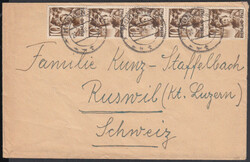 Familie Kunz-Staffelbach
Ruswil (Kt. Luzern)
Schweiz